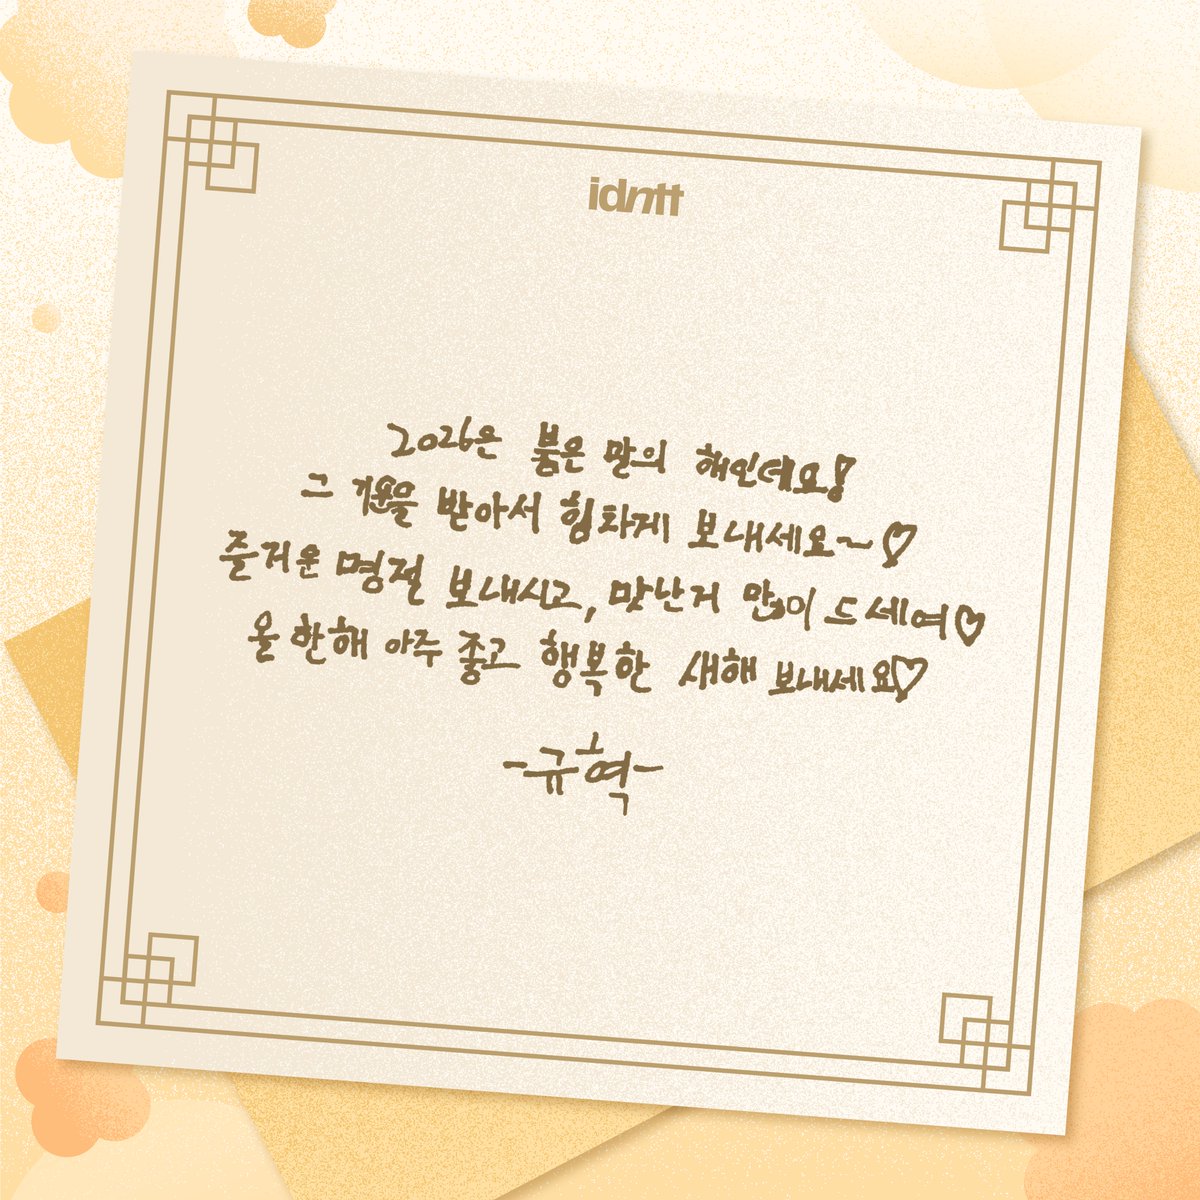 idntt
2026은 붉은 말의 해인데요!
그 기운을 받아서 힘차게 보내세요~♡
즐거운 명절 보내시고, 맛난거 많이 드세여♡
올 한해 아주 좋고 행복한 새해 보내세요♡
-규혁-